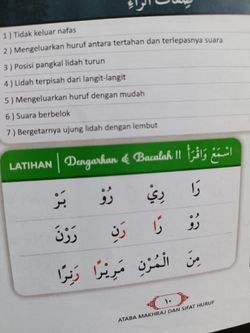 صِفَاتُ الرَّاءِ
1 ) Tidak keluar nafas
2 ) Mengeluarkan huruf antara tertahan dan terlepasnya suara
3 ) Posisi pangkal lidah turun
4 ) Lidah terpisah dari langit-langit
5 ) Mengeluarkan huruf dengan mudah
6 ) Suara berbelok
7 ) Bergetarnya ujung lidah dengan lembut
LATIHAN | Dengarkan & Bacalah !! اِسْمَعْ وَاقْرَأْ
رَا رِيْ رُوْ بَرْ
رُوْ رًا رَنِ رَرْنَ
مِنَ الْمُزْنِ مَرِيْرًا رَنِرًا
١٠
ATABA MAKHRAJ DAN SIFAT HURUF